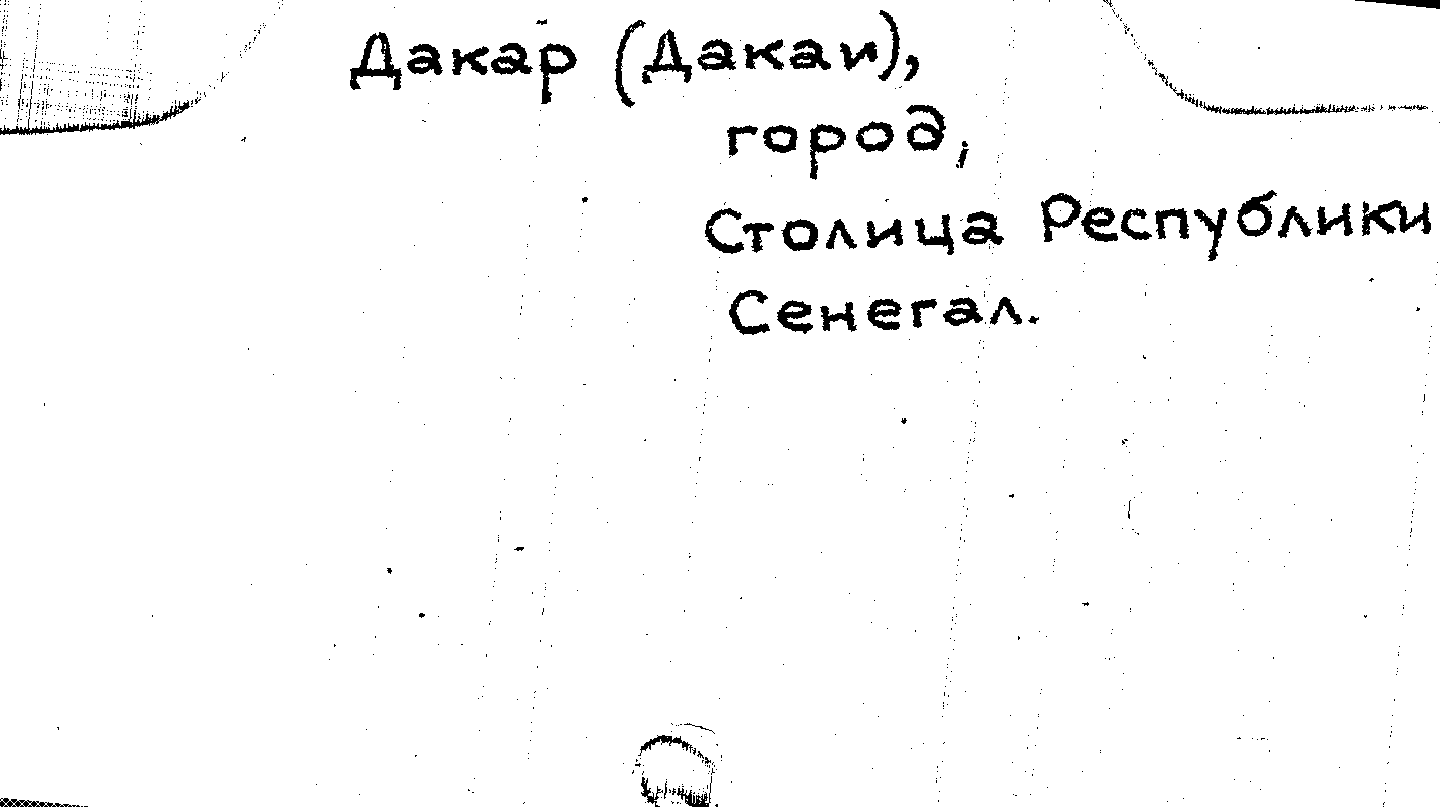 Дакар (Дакаи),
город,
Столица Республики
Сенегал.